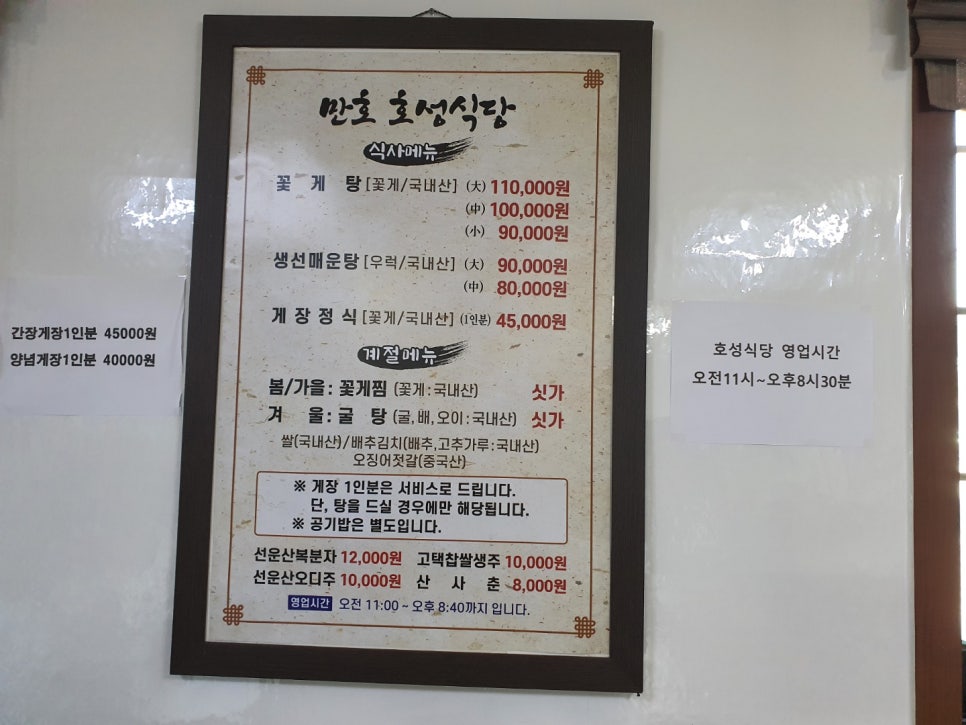 간장게장1인분 45000원
양념게장1인분 40000원
만호 호성식당
식사메뉴
꽃 게 탕 [꽃게/국내산] (大) 110,000원
(中) 100,000원
(小) 90,000원
생선매운탕 [우럭/국내산] (大) 90,000원
(中) 80,000원
게 장 정 식 [꽃게/국내산] (1인분) 45,000원
계절메뉴
봄/가을 : 꽃게찜 (꽃게 : 국내산) 싯가
겨 울 : 굴 탕 (굴, 배, 오이 : 국내산) 싯가
쌀(국내산) / 배추김치(배추, 고추가루 : 국내산)
오징어젓갈(중국산)
※ 게장 1인분은 서비스로 드립니다.
단, 탕을 드실 경우에만 해당됩니다.
※ 공기밥은 별도입니다.
선운산복분자 12,000원 고택찹쌀생주 10,000원
선운산오디주 10,000원 산 사 춘 8,000원
영업시간 오전 11:00 ~ 오후 8:40까지 입니다.
호성식당 영업시간
오전11시~오후8시30분